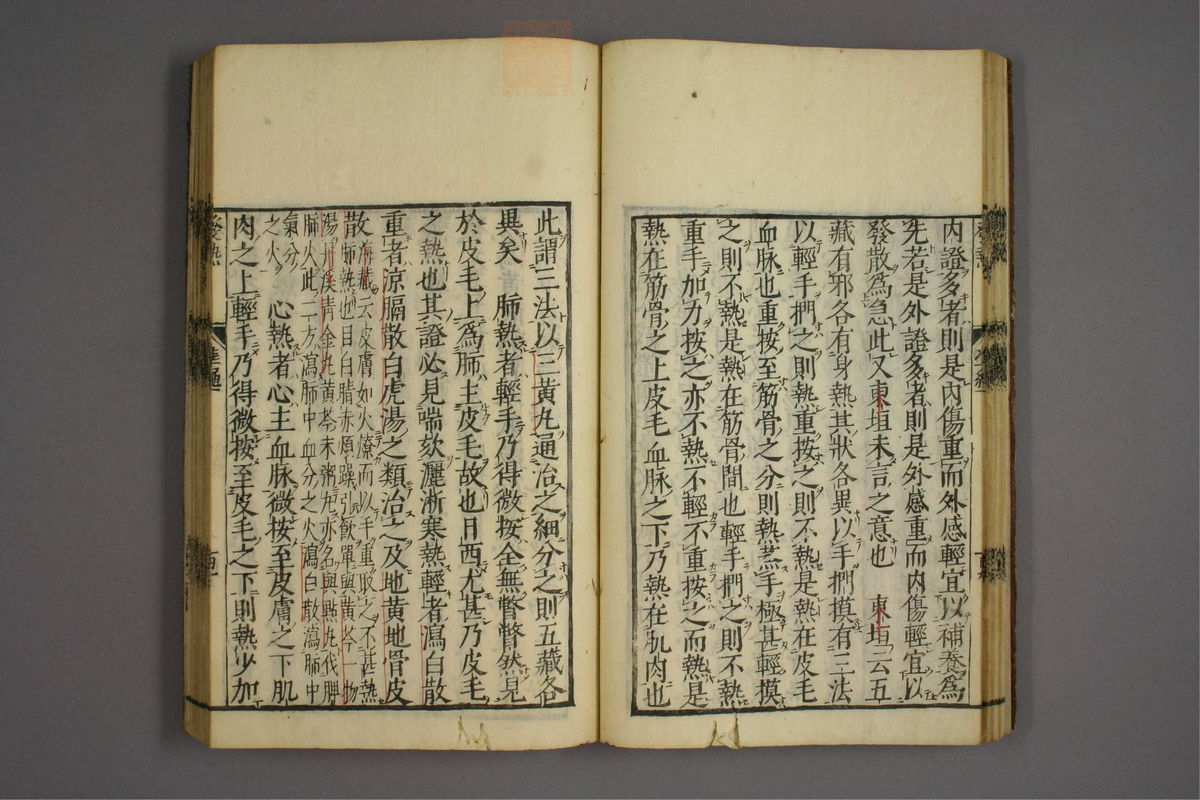 內證多者則是內傷重而外感輕宜以補養爲
先若是外證多者則是外感重而內傷輕宜以
發散爲急此又東垣未言之意也　東垣云五
藏有邪各有身熱其狀各異以手捫摸有三法
以輕手捫之則熱重按之則不熱是熱在皮毛
血脉也重按至筋骨之分則熱蒸手極甚輕摸
之則不熱是熱在筋骨間也輕手捫之則不熱
重手加力按之亦不熱不輕不重按之而熱是
熱在筋骨之上皮毛血脉之下乃熱在肌肉也
此謂三法以三黃丸通治之細分之則五藏各
異矣　肺熱者輕手乃得微按全無瞥瞥然見
於皮毛上爲肺主皮毛故也日西尤甚乃皮毛
之熱也其證必見喘欬灑淅寒熱輕者瀉白散
重者涼膈散白虎湯之類治之及地黃地骨皮
散海藏云皮膚如火燎而以手重取之不甚熱
肺熱也目白睛赤煩躁引飲單與黃芩一物
湯丹溪青金丸黃芩末粥丸亦名與點丸伐脾
肺火此二方瀉肺中血分之火瀉白散瀉肺中
氣分
之火　心熱者心主血脉微按至皮膚之下肌
肉之上輕手乃得微按至皮毛之下則熱少加
發熱
準繩